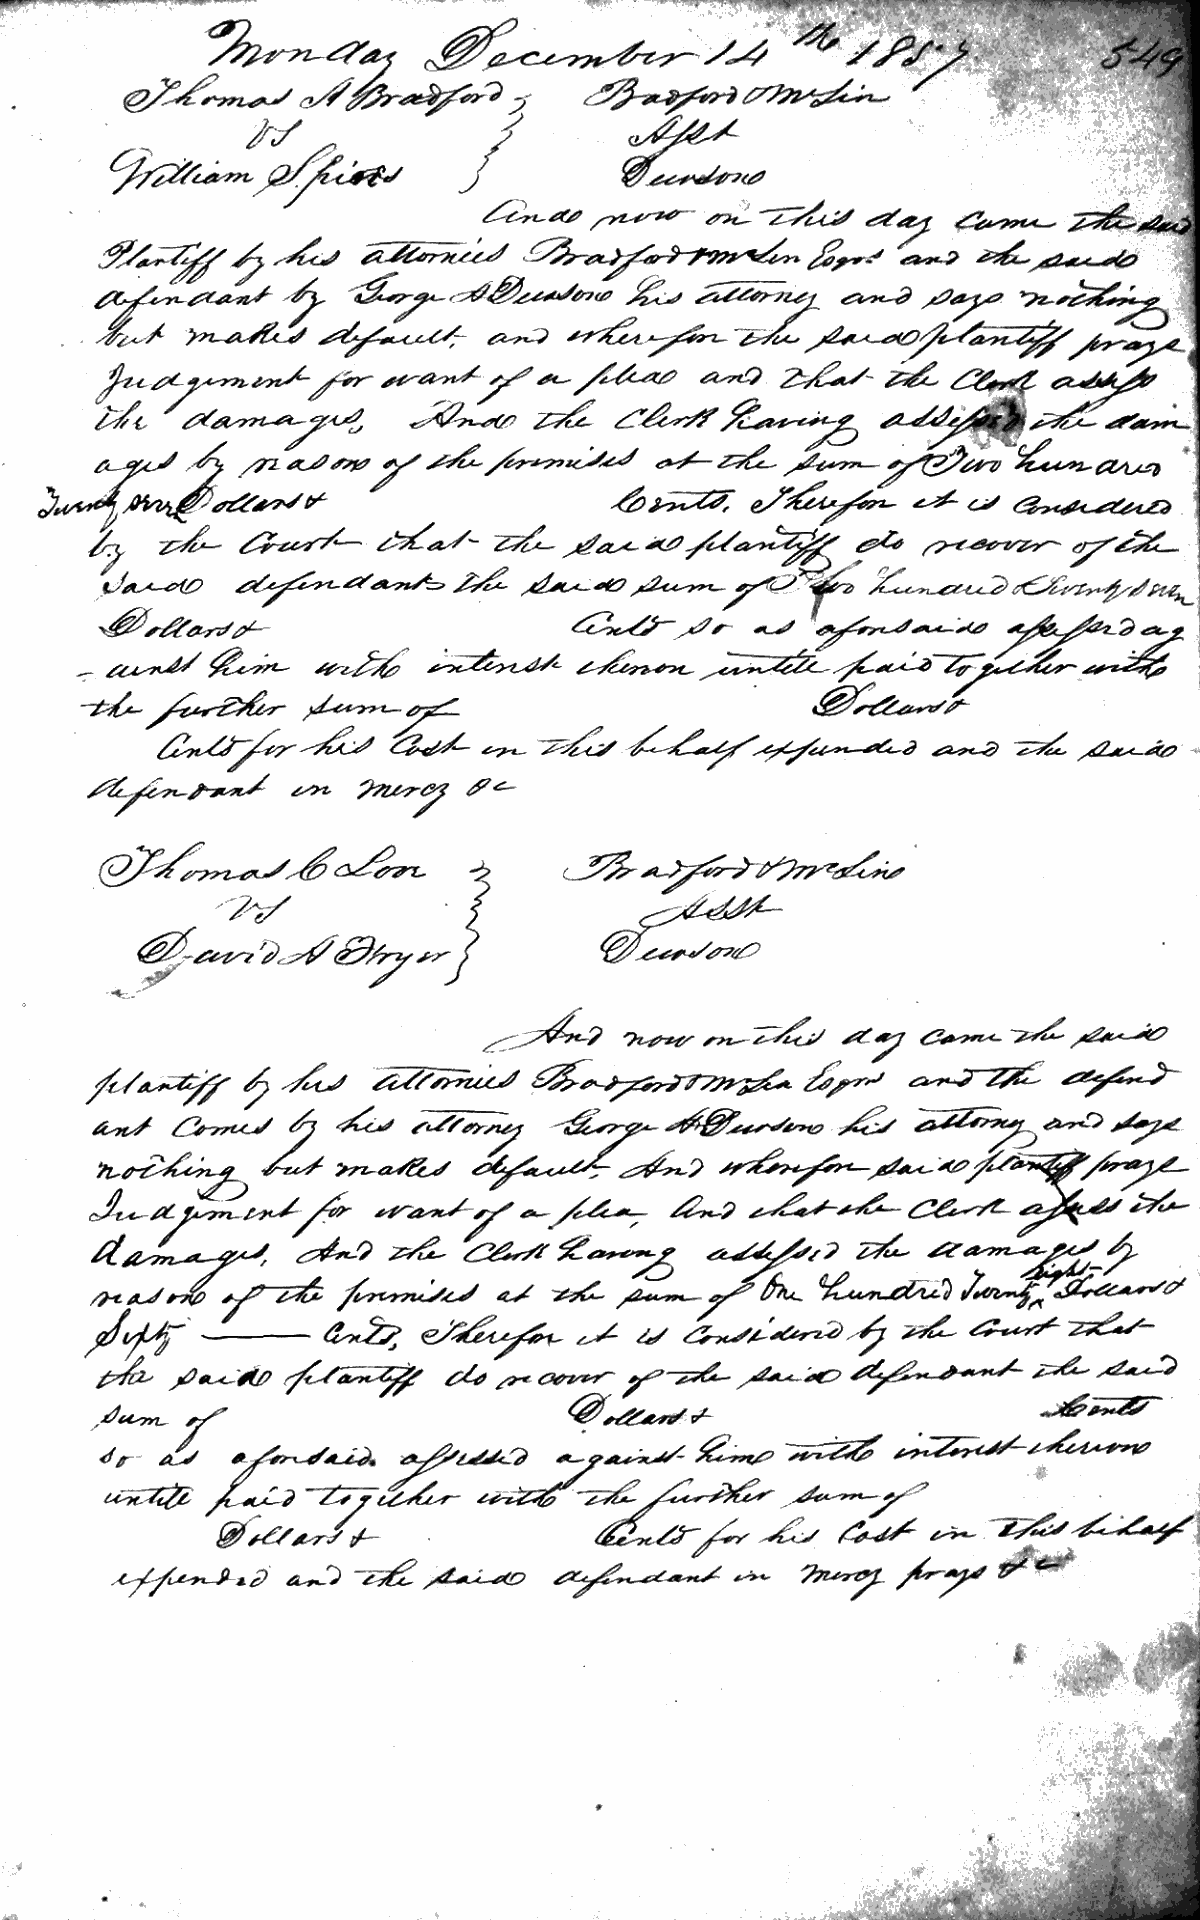 Monday December 14th 1857 549
Thomas A Bradford } Bradford & McLin
vs Asst
William Spiers Dewson
And now on this day came the said
Plantiff by his attornies Bradford & McLin Esqrs and the said
defendant by George A Dewson his attorney and says nothing
but makes default, and wherefor the said plantiff prays
Judgement for want of a plea and that the Clerk assess
the damages, And the Clerk having assessed the dam
ages by reason of the premises at the sum of Two hundred
Twenty seven Dollars & Cents. Therefor it is considered
by the Court that the said plantiff do recover of the
said defendant the said sum of Two hundred & Twenty seven
Dollars & Cents so as aforesaid assessed ag
- ainst him with interest thereon untill paid together with
the further sum of Dollars &
Cents for his Cost in this behalf expended and the said
defendant in mercy &c
Thomas C Love } Bradford & McLin
vs Asst
David A Fryer Dewson
And now on this day came the said
plantiff by his attornies Bradford & McLin Esqrs and the defend
ant comes by his attorney George A Dewson his attorney and says
nothing but makes default, And wherefor said plantiff prays
Judgement for want of a plea, and that the Clerk assess the
damages, And the Clerk having assessed the damages by
reason of the premises at the sum of One hundred Twenty eight Dollars &
Sixty —— Cents, Therefor it is considered by the Court that
the said plantiff do recover of the said defendant the said
sum of Dollars & Cents
so as aforesaid assessed against him with interest thereon
untill paid together with the further sum of
Dollars & Cents for his Cost in this behalf
expended and the said defendant in mercy prays &c